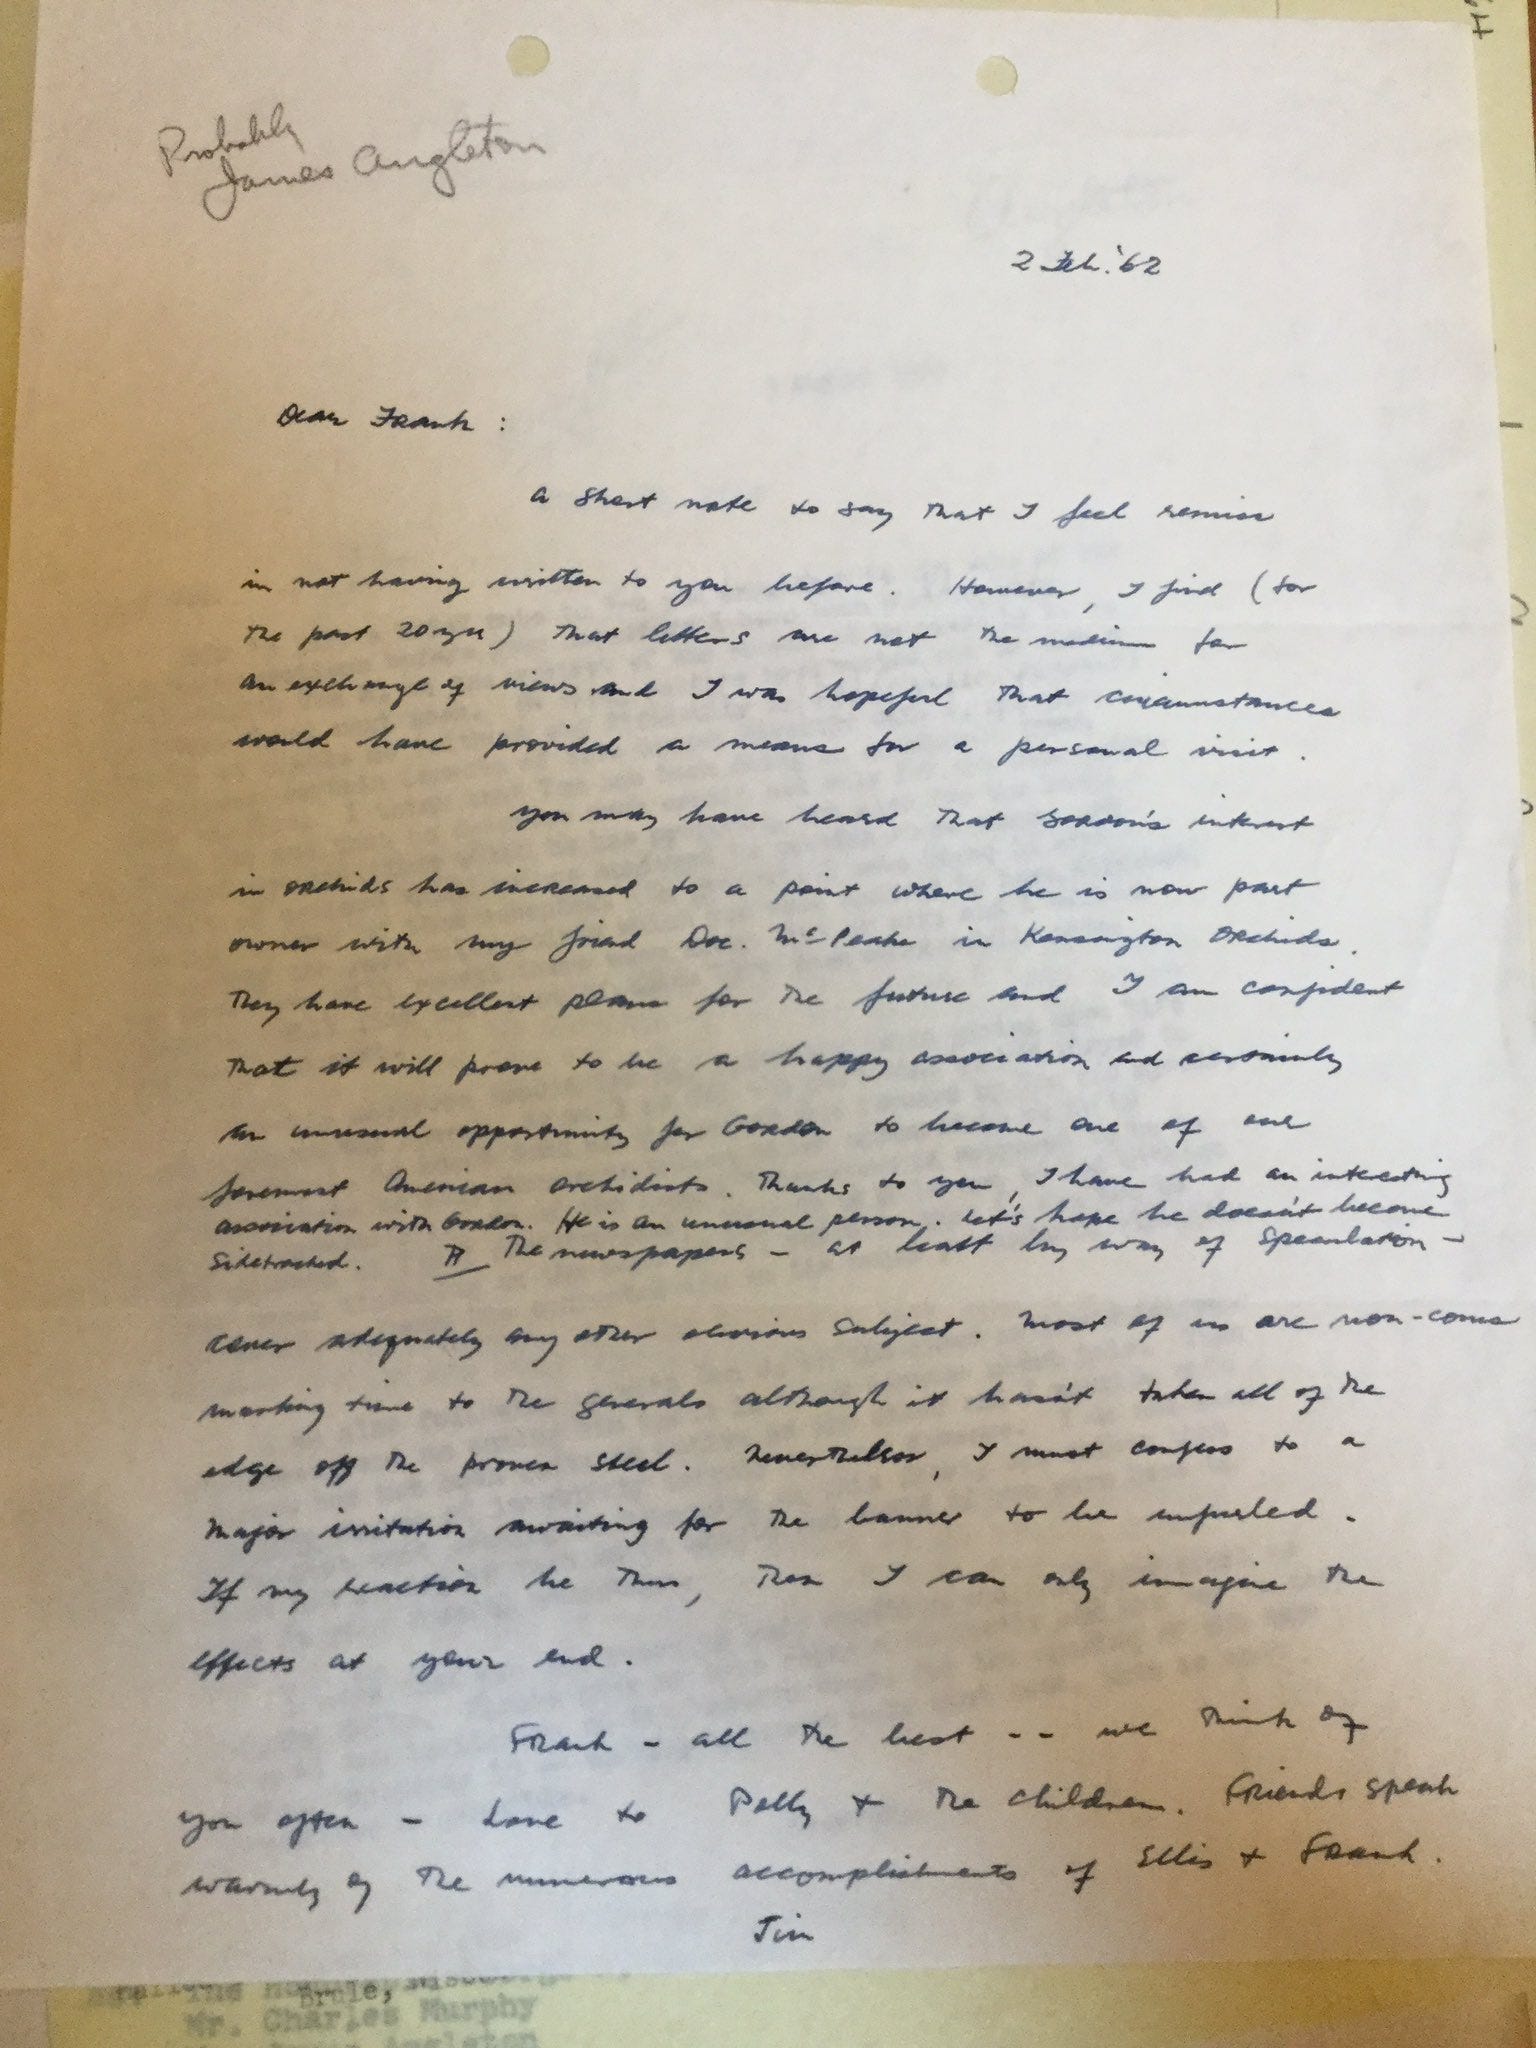 Probably
James Angleton
2 Feb. '62
Dear Frank :
a short note to say that I feel remiss
in not having written to you before. However, I find (for
the past 20 yrs) that letters are not the medium for
an exchange of views and I was hopeful that circumstances
would have provided a means for a personal visit.
You may have heard that Gordon's interest
in orchids has increased to a point where he is now part
owner with my friend Doc. McPeake in Kensington Orchids.
They have excellent plans for the future and I am confident
that it will prove to be a happy association and certainly
an unusual opportunity for Gordon to become one of our
foremost American orchidists. Thanks to you, I have had an interesting
association with Gordon. He is an unusual person. Let's hope he doesn't become
sidetracked. ¶ The newspapers - at least by way of speculation -
cover adequately any other obvious subject. Most of us are non-coms
marking time to the generals although it hasn't taken all of the
edge off the proven steel. Nevertheless, I must confess to a
major irritation awaiting for the banner to be unfurled.
If my reaction be thus, then I can only imagine the
effects at your end.
Frank - all the best -- we think of
you often - Love to Polly + the children. Friends speak
warmly of the numerous accomplishments of Ellis + Frank.
Jim
Brule,
Mr. Charles Murphy
Angleton